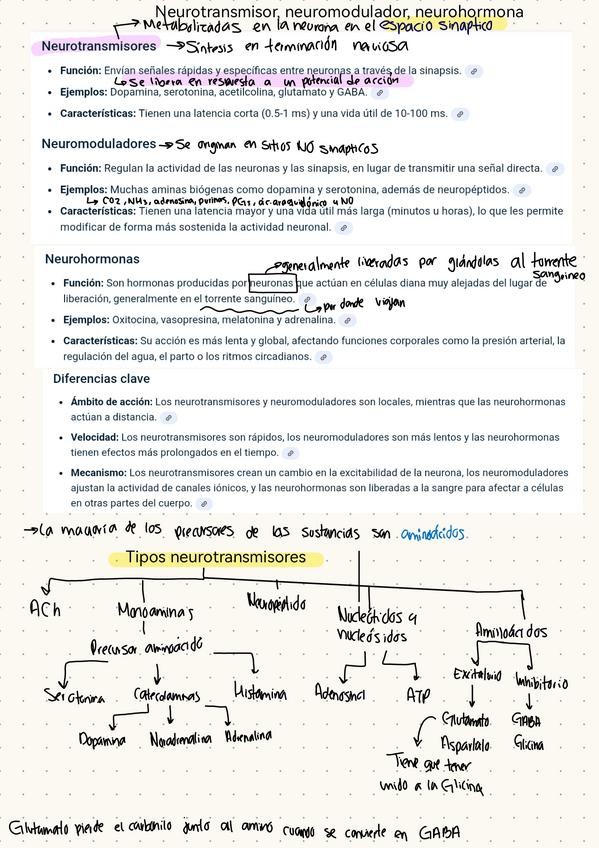 Neurotransmisor, neuromodulador, neurohormona
→ Metabolizadas en la neurona en el espacio sinaptico
Neurotransmisores → Síntesis en terminación nerviosa
• Función: Envían señales rápidas y específicas entre neuronas a través de la sinapsis.
↳ Se libera en respuesta a un potencial de acción
• Ejemplos: Dopamina, serotonina, acetilcolina, glutamato y GABA.
• Características: Tienen una latencia corta (0.5-1 ms) y una vida útil de 10-100 ms.
Neuromoduladores → Se originan en sitios NO sinapticos
• Función: Regulan la actividad de las neuronas y las sinapsis, en lugar de transmitir una señal directa.
• Ejemplos: Muchas aminas biógenas como dopamina y serotonina, además de neuropéptidos.
↳ CO2, NH3, adenosina, purinas, PGs, ác. araquidónico y NO
• Características: Tienen una latencia mayor y una vida útil más larga (minutos u horas), lo que les permite
modificar de forma más sostenida la actividad neuronal.
Neurohormonas
→ generalmente liberadas por glándulas al torrente
sanguineo
• Función: Son hormonas producidas por neuronas que actúan en células diana muy alejadas del lugar de
liberación, generalmente en el torrente sanguíneo.
↳ por donde viajan
• Ejemplos: Oxitocina, vasopresina, melatonina y adrenalina.
• Características: Su acción es más lenta y global, afectando funciones corporales como la presión arterial, la
regulación del agua, el parto o los ritmos circadianos.
Diferencias clave
• Ámbito de acción: Los neurotransmisores y neuromoduladores son locales, mientras que las neurohormonas
actúan a distancia.
• Velocidad: Los neurotransmisores son rápidos, los neuromoduladores son más lentos y las neurohormonas
tienen efectos más prolongados en el tiempo.
• Mecanismo: Los neurotransmisores crean un cambio en la excitabilidad de la neurona, los neuromoduladores
ajustan la actividad de canales iónicos, y las neurohormonas son liberadas a la sangre para afectar a células
en otras partes del cuerpo.
→ La mayoría de los precursores de las sustancias son aminoácidos
Tipos neurotransmisores
ACh
Monoaminas
Neuropéptido
Nucleótidos y
nucleósidos
Aminoácidos
Precursor aminoácido
Serotonina
Catecolaminas
Histamina
Adenosina
ATP
Excitatorio
Inhibitorio
Dopamina
Noradrenalina
Adrenalina
Glutamato
Aspartato
GABA
Glicina
Tiene que tener
unido a la Glicina
Glutamato pierde el carbonilo junto al amino cuando se convierte en GABA